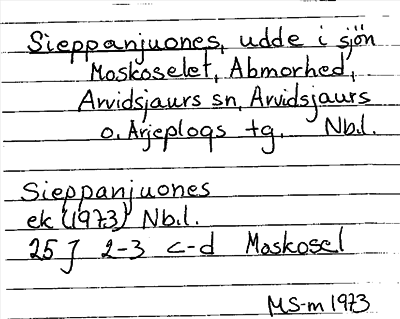 Sieppanjuones, udde i sjön
Moskoselet, Abmorhed,
Arvidsjaurs sn, Arvidsjaurs
o. Arjeplogs tg. Nb.l.
Sieppanjuones
ek (1973) Nb.l.
25 J 2-3 c-d Moskosel
MS-m 1973